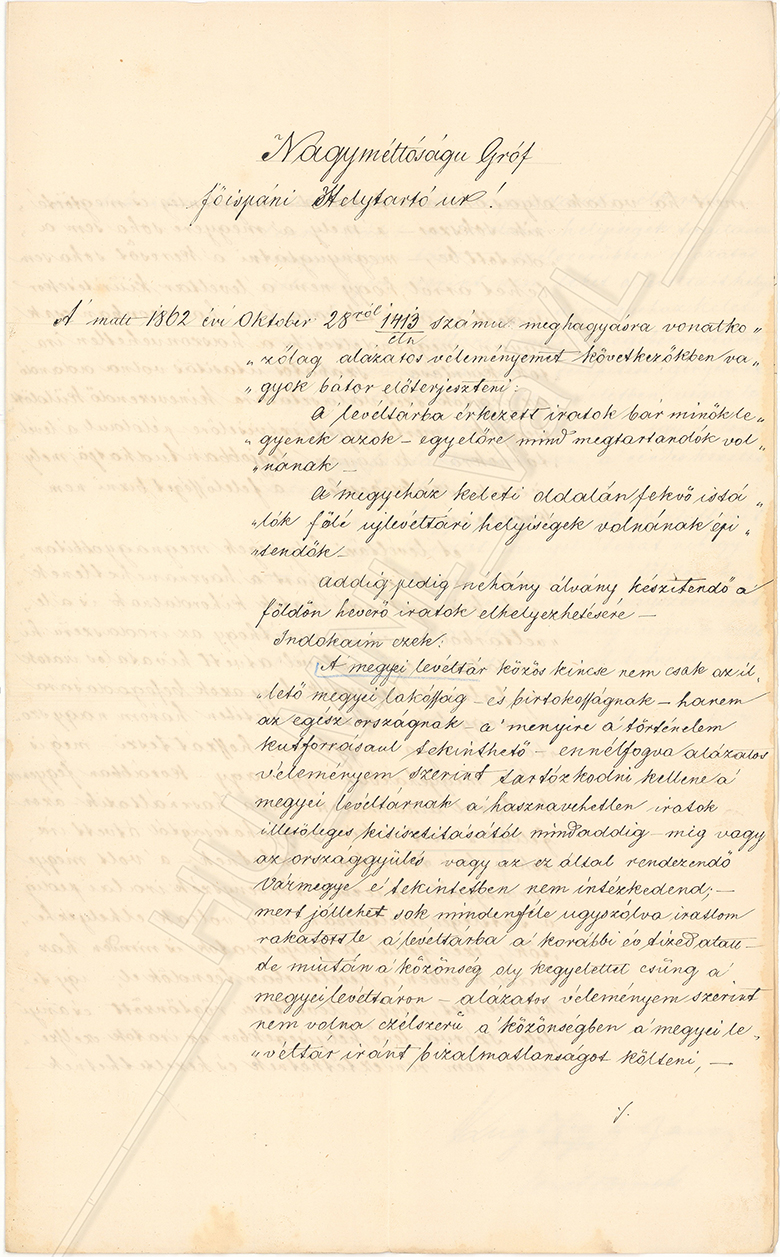 Nagyméltóságu Gróf
főispáni Helytartó ur!
A' mult 1862 évi Oktober 28ról 1413/eln számu meghagyásra vonatko„
„zólag alázatos véleményemet következőkben va„
„gyok bátor előterjeszteni:
A' levéltárba érkezett iratok bár minők le„
„gyenek azok – egyelőre mind megtartandók vol„
„nának –
A' megyeház keleti oldalán fekvő istá„
„lók fölé ujlevéltári helyiségek volnának épi„
„tendők –
addig pedig néhány álvány készitendő a'
földön heverő iratok elhelyezhetésére –
Indokaim ezek:
A megyei levéltár közös kincse nem csak az il„
„lető megyei lakósság – és birtokosságnak – hanem
az egész országnak – a' menyire a' történelem
kutforrásaul tekinthető – ennélfogva alázatos
véleményem szerint tartózkodni kellene a'
megyei levéltárnak a' hasznavehetlen iratok
illetőleges kitisztitásától mindaddig – mig vagy
az országgyülés vagy az ez által rendezendő
Vármegye e' tekintetben nem intézkedend; –
mert jóllehet sok mindenféle ugyszólva iratlom
rakatott le a' levéltárba a' korábbi év tized alatt –
de miután a' közönség oly kegyelettel csüng a'
megyei levéltáron – alázatos véleményem szerint
nem volna czélszerű a' közönségben a' megyei le„
„véltár iránt bizalmatlanságot költeni, –
./.
HU MNL VaVL